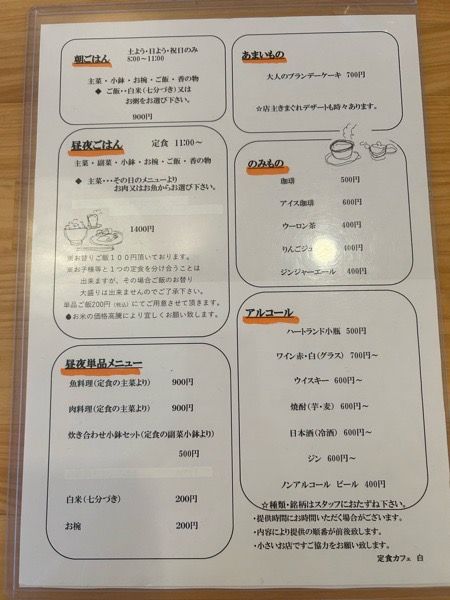 朝ごはん
土よう・日よう・祝日のみ
8:00~11:00
主菜・小鉢・お椀・ご飯・香の物
◆ ご飯・・白米(七分づき)又は
お粥をお選び下さい。
900円
昼夜ごはん 定食 11:00~
主菜・副菜・小鉢・お椀・ご飯・香の物
◆ 主菜・・・その日のメニューより
お肉又はお魚からお選び下さい。
1400円
※お替りご飯100円頂いております。
※お子様等と1つの定食を分け合うことは
出来ますが、その場合ご飯のお替り
大盛りは出来ませんのでご了承下さい。
単品ご飯200円(税込)にてご用意させて頂きます。
●お米の価格高騰により宜しくお願い致します。
昼夜単品メニュー
魚料理(定食の主菜より) 900円
肉料理(定食の主菜より) 900円
炊き合わせ小鉢セット(定食の副菜小鉢より)
500円
白米(七分づき) 200円
お椀 200円
あまいもの
大人のブランデーケーキ 700円
☆店主きまぐれデザートも時々あります。
のみもの
珈琲 500円
アイス珈琲 600円
ウーロン茶 400円
りんごジュース 400円
ジンジャーエール 400円
アルコール
ハートランド小瓶 500円
ワイン赤・白(グラス) 700円~
ウイスキー 600円~
焼酎(芋・麦) 600円~
日本酒(冷酒) 600円~
ジン 600円~
ノンアルコール ビール 400円
☆種類・銘柄はスタッフにおたずね下さい。
・提供時間にお時間いただく場合がございます。
・内容により提供の順番が前後致します。
・小さいお店ですご協力をお願い致します。
定食カフェ 白